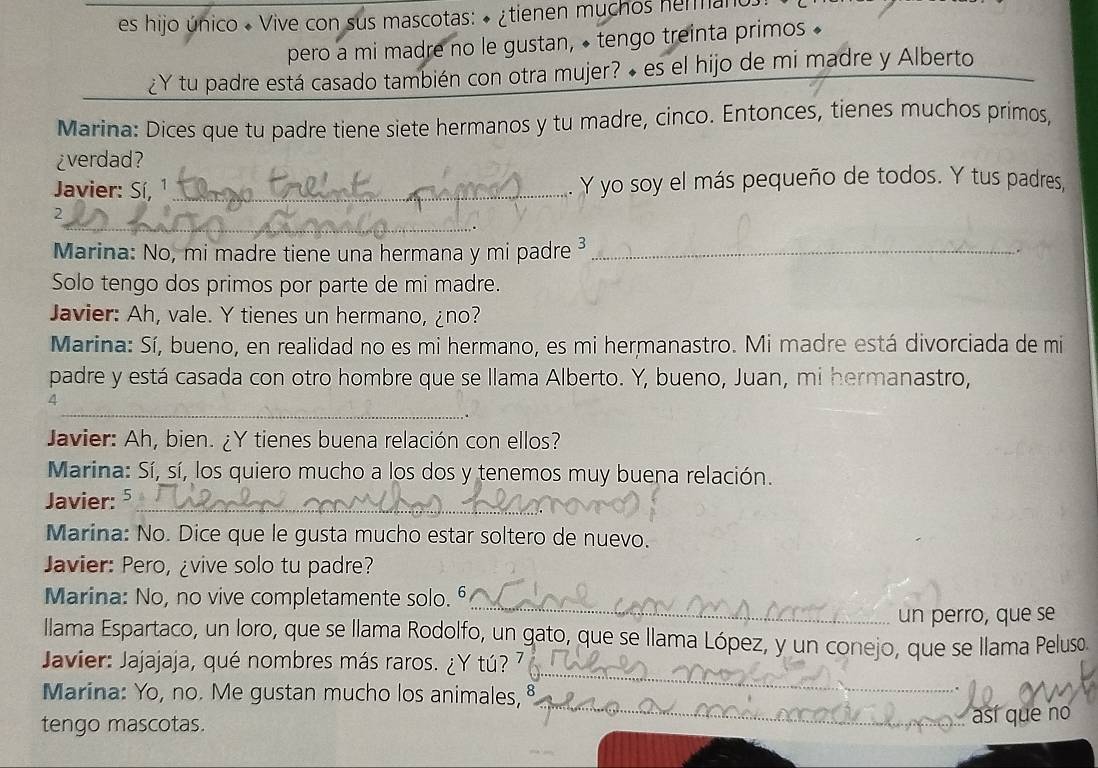 es hijo único • Vive con sus mascotas: • ¿tienen muchos
pero a mi madre no le gustan, • tengo treinta primos •
¿Y tu padre está casado también con otra mujer? • es el hijo de mi madre y Alberto
Marina: Dices que tu padre tiene siete hermanos y tu madre, cinco. Entonces, tienes muchos primos,
¿verdad?
Javier: Sí, ¹ tengo treinta primos. Y yo soy el más pequeño de todos. Y tus padres,
² es hijo único.
Marina: No, mi madre tiene una hermana y mi padre ³ .
Solo tengo dos primos por parte de mi madre.
Javier: Ah, vale. Y tienes un hermano, ¿no?
Marina: Sí, bueno, en realidad no es mi hermano, es mi hermanastro. Mi madre está divorciada de mi
padre y está casada con otro hombre que se llama Alberto. Y, bueno, Juan, mi hermanastro,
4 .
Javier: Ah, bien. ¿Y tienes buena relación con ellos?
Marina: Sí, sí, los quiero mucho a los dos y tenemos muy buena relación.
Javier: ⁵ Tienen muchos hermanos?
Marina: No. Dice que le gusta mucho estar soltero de nuevo.
Javier: Pero, ¿vive solo tu padre?
Marina: No, no vive completamente solo. ⁶ con un perro, que se
llama Espartaco, un loro, que se llama Rodolfo, un gato, que se llama López, y un conejo, que se llama Peluso.
Javier: Jajajaja, qué nombres más raros. ¿Y tú? ⁷ ¿Tienes .
Marina: Yo, no. Me gustan mucho los animales, ⁸ pero a mi madre no le así que no
tengo mascotas.